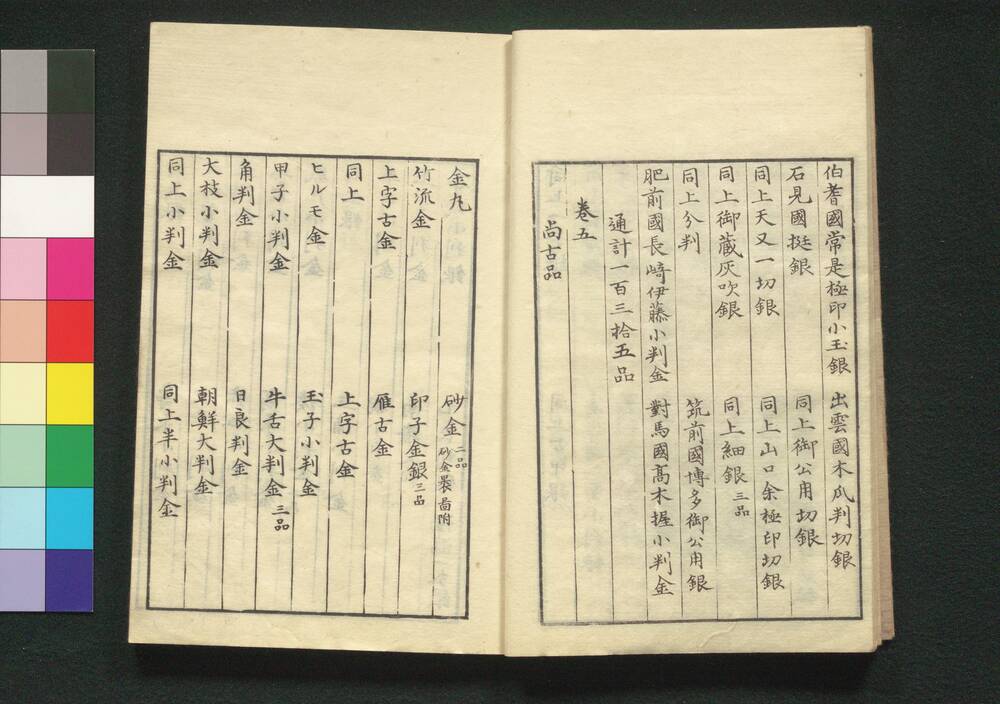 伯耆國常是極印小玉銀　出雲國木瓜判切銀
石見國挺銀　同上御公用切銀
同上天又一切銀　同上山口余極印切銀
同上御蔵灰吹銀　同上細銀三品
同上分判　筑前國博多御公用銀
肥前國長崎伊藤小判金　對馬國髙木握小判金
通計一百三拾五品
巻五
尚古品
金丸　砂金二品砂金嚢啚附
竹流金　印子金銀三品
上字古金　雁古金
同上　上字古金
ヒルモ金　玉子小判金
甲子小判金　牛舌大判金三品
角判金　日良判金
大枝小判金　朝鮮大判金
同上小判金　同上半小判金